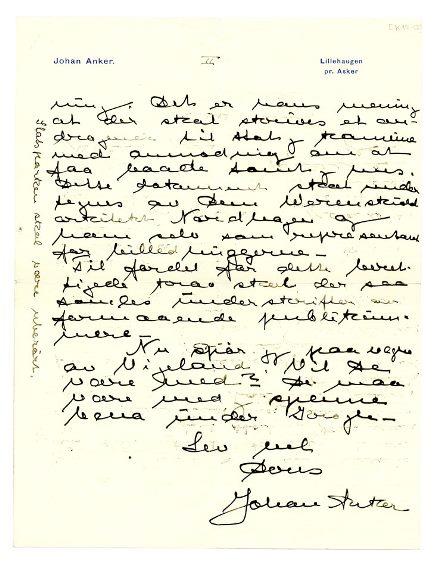 Johan Anker.
II
Lillehaugen
pr. Asker
ning. Det er hans mening
at der skal skrives et an-
til Stat og kommune
med anmodning om at
faa baade tomt og hus.
Dette dokument skal under
tegnes av Dem Werenskiold
arkitekt Nordhagen og
ham selv som representant
for billedhuggerne –
Til fordel for dette beret-
tigede torao skal der saa
samles underskrifter av
formaaende publikum-
mere –
Nu spør jeg paa vegne
av Vigeland Vil De
være med? De maa
være med spænne
bena under
Lev vel
Deres
Johan Anker
Slotsparken skal være uberørt.